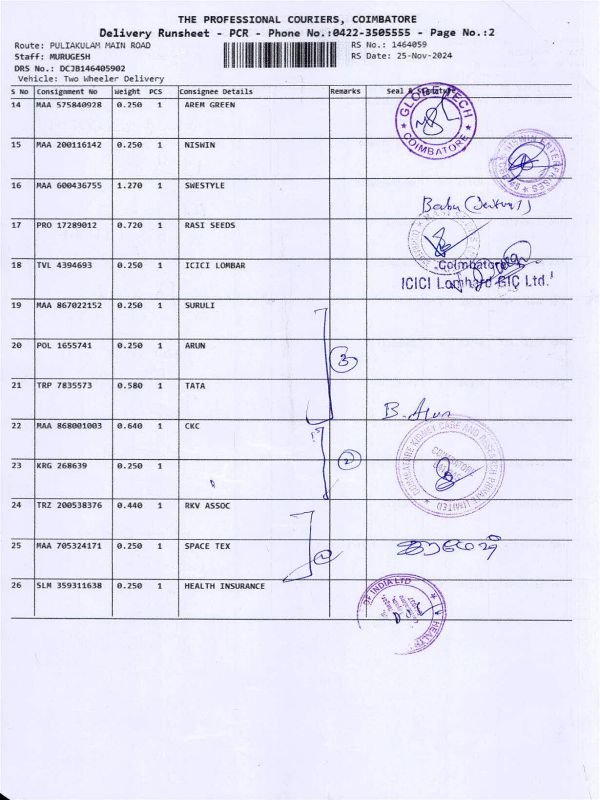 THE PROFESSIONAL COURIERS, COIMBATORE
Delivery Runsheet - PCR - Phone No.:0422-3505555 - Page No.:2
Route: PULIAKULAM MAIN ROAD RS No.: 1464059
Staff: MURUGESH RS Date: 25-Nov-2024
DRS No.: DCJB146405902
Vehicle: Two Wheeler Delivery
S No Consignment No Weight PCS Consignee Details Remarks Seal & Signature
14 MAA 575840928 0.250 1 AREM GREEN
GLOBE TECH
★ COIMBATORE ★
15 MAA 200116142 0.250 1 NISWIN
NISWIN ENTERPRISES
16 MAA 600436755 1.270 1 SWESTYLE
Babu
17 PRO 17289012 0.720 1 RASI SEEDS
18 TVL 4394693 0.250 1 ICICI LOMBAR
Coimbatore
ICICI Lombard GIC Ltd.
19 MAA 867022152 0.250 1 SURULI
20 POL 1655741 0.250 1 ARUN
3
21 TRP 7835573 0.580 1 TATA
B. Arun
22 MAA 868001003 0.640 1 CKC
COIMBATORE KIDNEY CARE AND RESEARCH PRIVATE LIMITED
COIMBATORE
23 KRG 268639 0.250 1
2
24 TRZ 200538376 0.440 1 RKV ASSOC
25 MAA 705324171 0.250 1 SPACE TEX
2
26 SLM 359311638 0.250 1 HEALTH INSURANCE
OF INDIA LTD
HEALTH